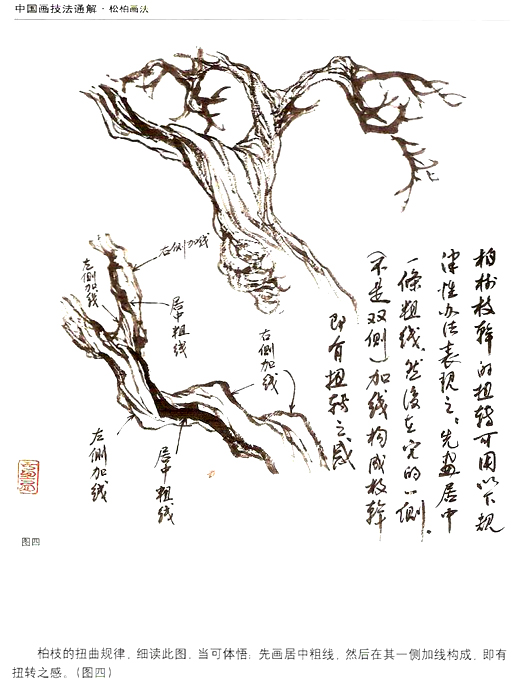 中国画技法通解·松柏画法
柏树枝幹的扭转可用以下规
律性办法表现之：先画居中
一條粗线、然後在它的一侧
（不是双侧）加线构成枝幹
即有扭转之感
右侧加线
左侧加线
居中粗线
右侧加线
左侧加线
居中粗线
图四
柏枝的扭曲规律，细读此图，当可体悟：先画居中粗线，然后在其一侧加线构成，即有
扭转之感。（图四）